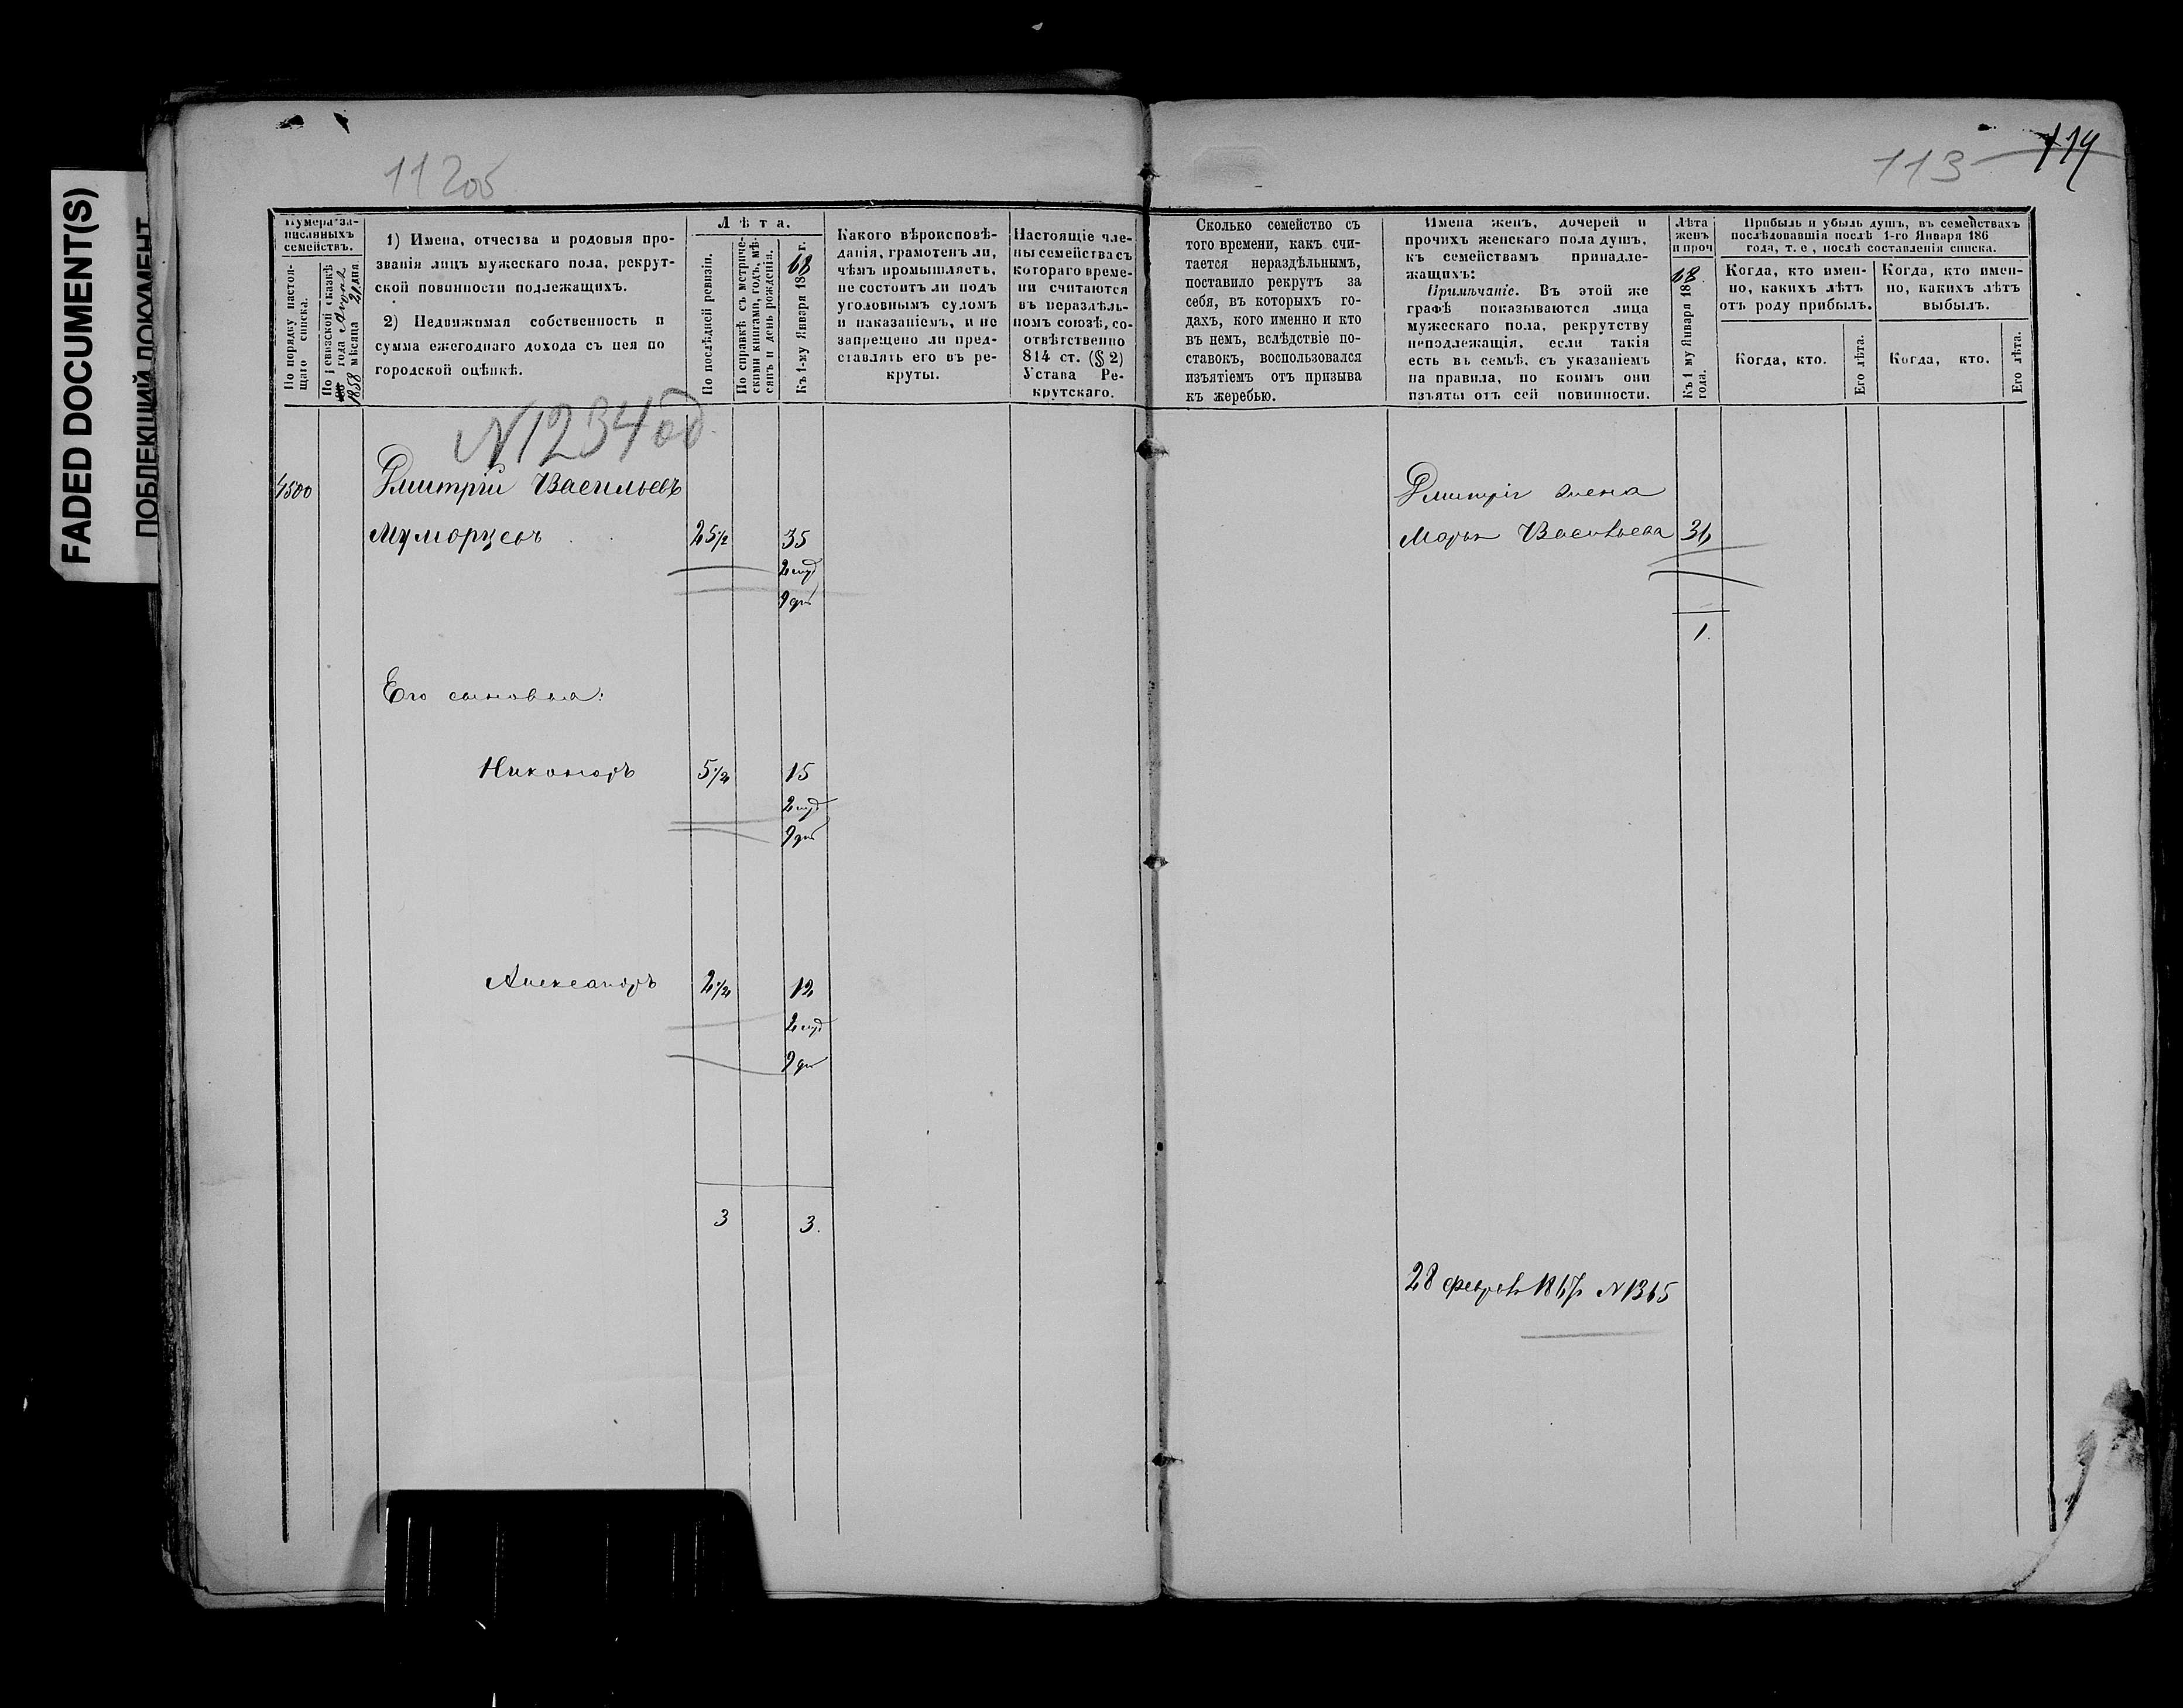 FADED DOCUMENT(S)
ПОБЛЕКЩИЙ ДОКУМЕНТ
112об
113
114
Нумера записляныхъ семействъ.
По порядку настоящаго списка.
По ревизской сказкѣ
1858 года Апрѣля мѣсяца 21 дня
1) Имена, отчества и родовыя прозванія лицъ мужескаго пола, рекрутской повинности подлежащихъ.
2) Недвижимая собственность и сумма ежегоднаго дохода съ нея по городской оцѣнкѣ.
Лѣта.
По послѣдней ревизіи.
По справкѣ съ метрическими книгами, годъ, мѣсяцъ и день рожденія.
Къ 1-му Января 1868 г.
Какого вѣроисповѣданія, грамотенъ ли, чѣмъ промышляетъ, не состоитъ ли подъ уголовнымъ судомъ и наказаніемъ, и не запрещено ли представлять его въ рекруты.
Настоящіе члены семейства съ котораго времени считаются въ нераздѣльномъ союзѣ, соотвѣтственно 814 ст. (§ 2) Устава Рекрутскаго.
Сколько семейство съ того времени, какъ считается нераздѣльнымъ, поставило рекрутъ за себя, въ которыхъ годахъ, кого именно и кто въ немъ, вслѣдствіе поставокъ, воспользовался изъятіемъ отъ призыва къ жеребью.
Имена женъ, дочерей и прочихъ женскаго пола душъ, къ семействамъ принадлежащихъ:
Примѣчаніе. Въ этой же графѣ показываются лица мужескаго пола, рекрутству неподлежащія, если такія есть въ семьѣ, съ указаніемъ на правила, по коимъ они изъяты отъ сей повинности.
Лѣта женъ и проч
Къ 1 му Января 1868 года.
Прибыль и убыль душъ, въ семействахъ послѣдовавшія послѣ 1-го Января 186 года, т. е., послѣ составленія списка.
Когда, кто именно, какихъ лѣтъ отъ роду прибылъ.
Когда, кто именно, какихъ лѣтъ выбылъ.
Когда, кто.
Его лѣта.
Когда, кто.
Его лѣта.
N 1234 об.
4500
Дмитрій Васильевъ
25½ 35
9 дн
Его сыновья:
Никоноръ 5½ 15
9 дн
Александръ 2½ 12
9 дн
3 3.
Дмитрія жена
Марья Васильева 31
1.
28 февраля 1867 N 1365